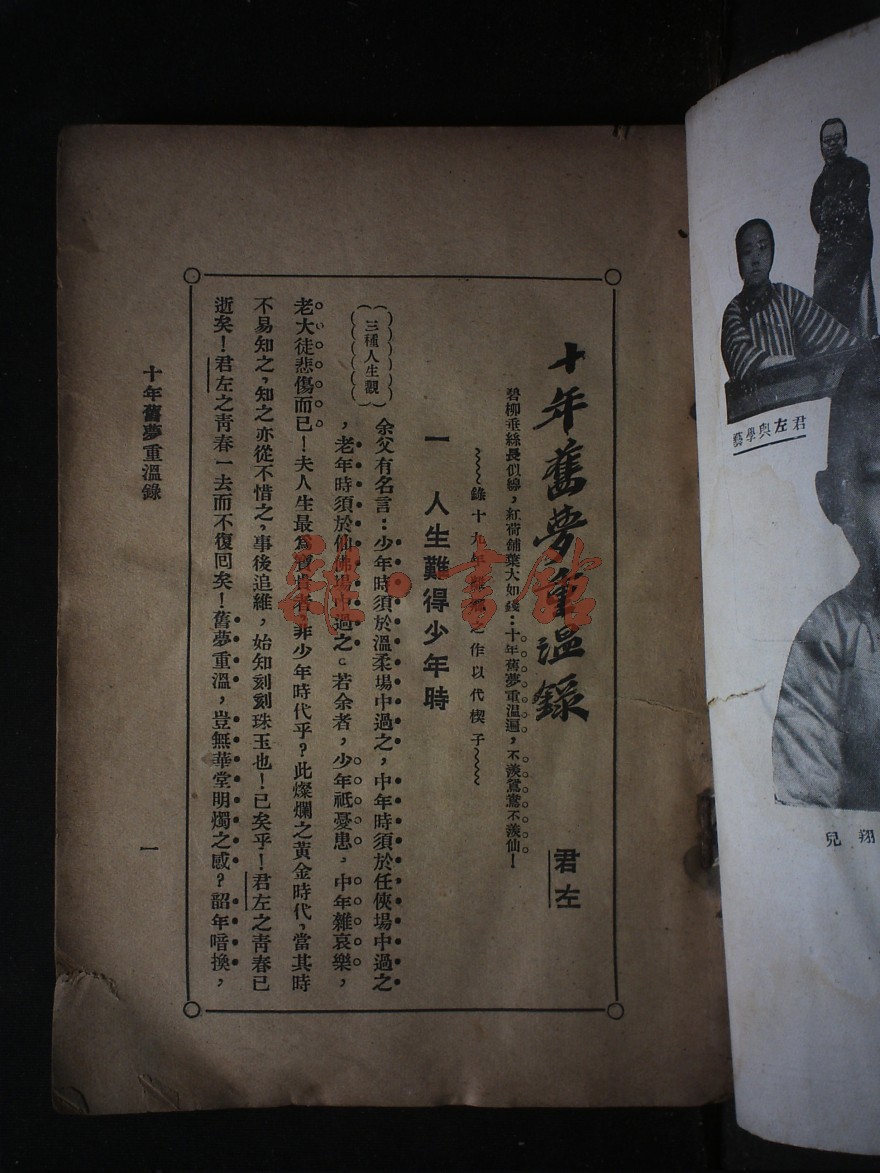 十年舊夢重溫錄
君左
碧柳垂絲長似線，紅荷鋪葉大如錢：十年舊夢重溫遍，不羨鴛鴦不羨仙！
錄十九年 之作以代楔子
一　人生難得少年時
三種人生觀
余父有名言：少年時須於溫柔場中過之，中年時須於任俠場中過之
，老年時須於仙佛場中過之。若余者，少年祇憂患，中年雜哀樂，
老大徒悲傷而已！夫人生最爲寶貴者，非少年時代乎？此燦爛之黃金時代，當其時
不易知之，知之亦從不惜之，事後追維，始知刻刻珠玉也！已矣乎！君左之靑春已
逝矣！君左之靑春一去而不復囘矣！舊夢重溫，豈無華堂明燭之感？韶年暗換，
十年舊夢重溫錄
一
君左與學藝
翔兒
雜·書館